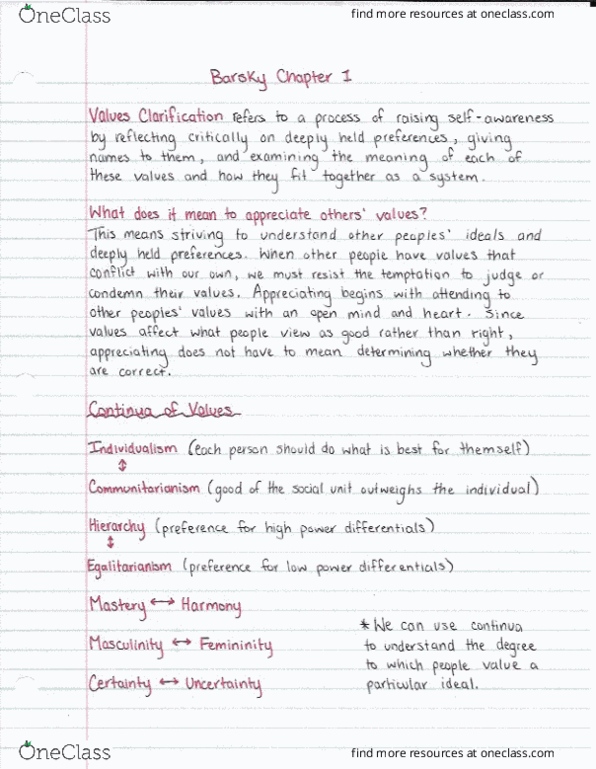 OneClass
find more resources at oneclass.com
Barsky Chapter 1
Values Clarification refers to a process of raising self-awareness
by reflecting critically on deeply held preferences, giving
names to them, and examining the meaning of each of
these values and how they fit together as a system.
What does it mean to appreciate others' values?
This means striving to understand other peoples' ideals and
deeply held preferences. When other people have values that
conflict with our own, we must resist the temptation to judge or
condemn their values. Appreciating begins with attending to
other peoples' values with an open mind and heart. Since
values affect what people view as good rather than right,
appreciating does not have to mean determining whether they
are correct.
Continua of Values
Individualism (each person should do what is best for themself)
↕
Communitarianism (good of the social unit outweighs the individual)
Hierarchy (preference for high power differentials)
↕
Egalitarianism (preference for low power differentials)
Mastery ↔ Harmony
Masculinity ↔ Femininity
Certainty ↔ Uncertainty
* We can use continua
to understand the degree
to which people value a
particular ideal.
OneClass
find more resources at oneclass.com